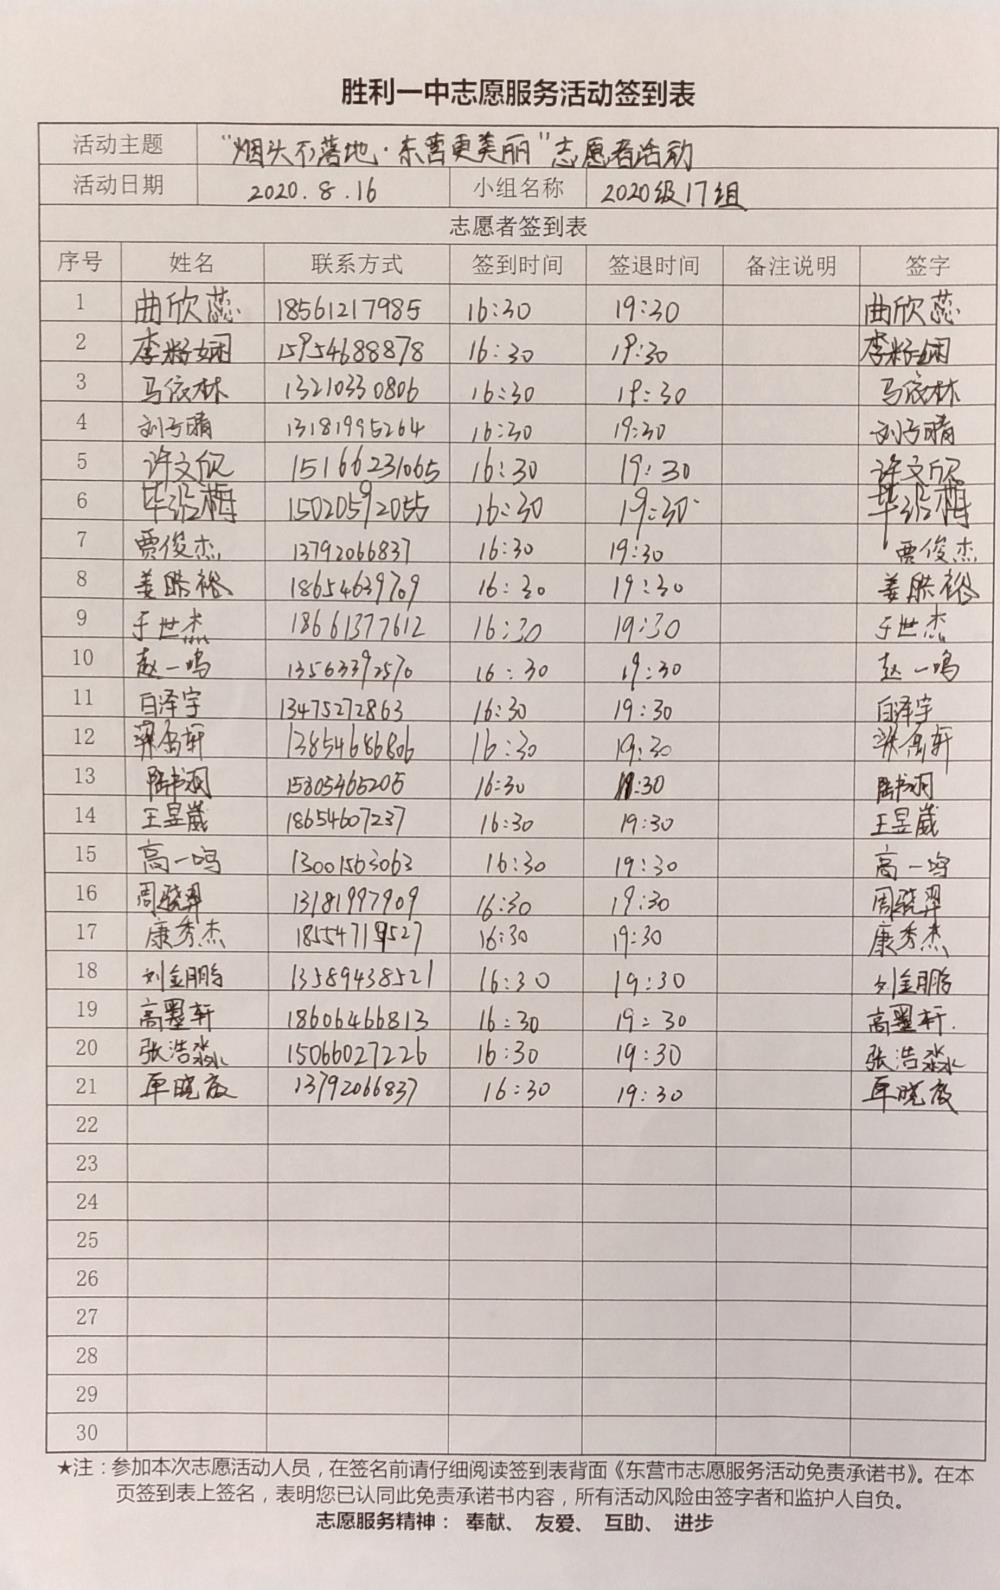 胜利一中志愿服务活动签到表
活动主题 "烟头不落地·东营更美丽"志愿者活动
活动日期 2020.8.16 小组名称 2020级17组
志愿者签到表
序号 姓名 联系方式 签到时间 签退时间 备注说明 签字
1 曲欣蕊 18561217985 16:30 19:30 曲欣蕊
2 李籽娴 15954688878 16:30 19:30 李籽娴
3 马依林 13210330806 16:30 19:30 马依林
4 刘子晴 13181995264 16:30 19:30 刘子晴
5 许文欣 15166231065 16:30 19:30 许文欣
6 15020592055 16:30 19:30
7 贾俊杰 13792066837 16:30 19:30 贾俊杰
8 姜皓裕 18654639709 16:30 19:30 姜皓裕
9 于世杰 18661377612 16:30 19:30 于世杰
10 赵一鸣 13563392570 16:30 19:30 赵一鸣
11 白泽宇 13475272863 16:30 19:30 白泽宇
12 梁禹轩 13854686806 16:30 19:30 梁禹轩
13 陆书润 15805465205 16:30 19:30 陆书润
14 王昱崴 18654607237 16:30 19:30 王昱崴
15 高一鸣 13001563063 16:30 19:30 高一鸣
16 周骁羿 13181997909 16:30 19:30 周骁羿
17 康秀杰 16:30 19:30 康秀杰
18 刘金鹏 13589438521 16:30 19:30 刘金鹏
19 高墨轩 18606466813 16:30 19:30 高墨轩
20 张浩淼 15066027226 16:30 19:30 张浩淼
21 单晓霞 13792066837 16:30 19:30 单晓霞
22
23
24
25
26
27
28
29
30
★注：参加本次志愿活动人员，在签名前请仔细阅读签到表背面《东营市志愿服务活动免责承诺书》。在本
页签到表上签名，表明您已认同此免责承诺书内容，所有活动风险由签字者和监护人自负。
志愿服务精神： 奉献、 友爱、 互助、 进步